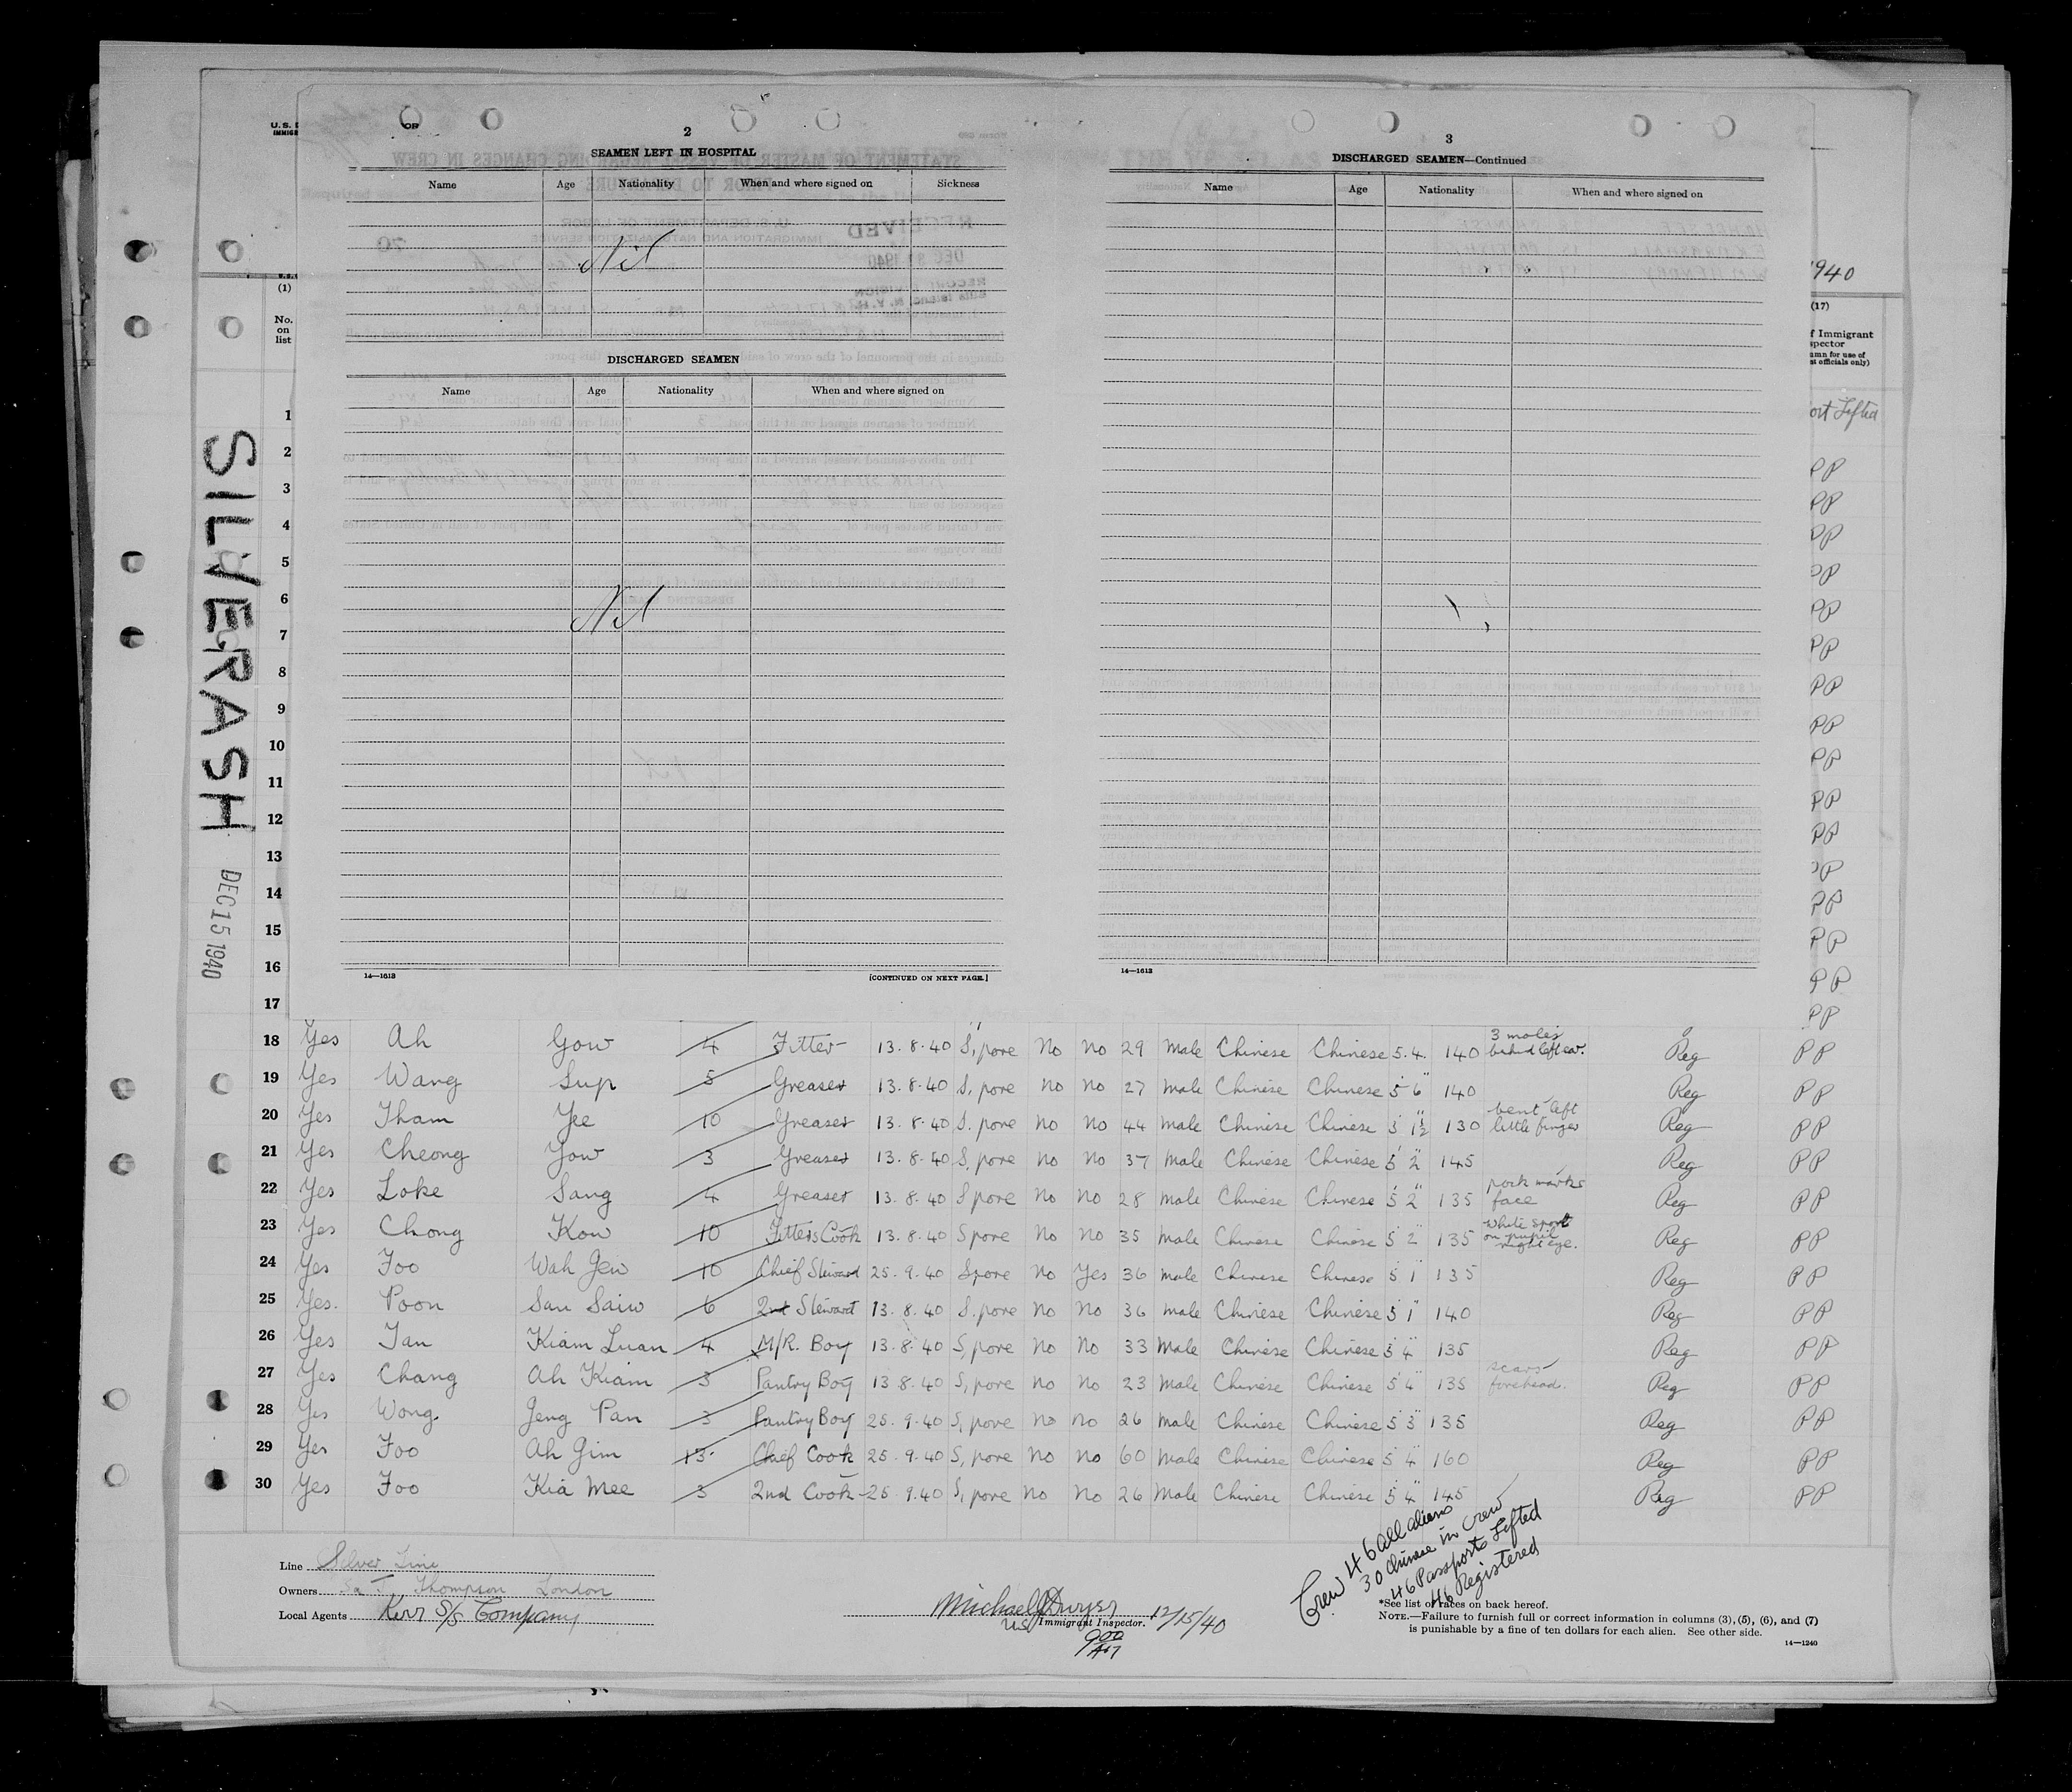 U. S. D
IMMIGR
OR
2
SEAMEN LEFT IN HOSPITAL
Name Age Nationality When and where signed on Sickness
Nil
DISCHARGED SEAMEN
Name Age Nationality When and where signed on
Nil
14—1613 [CONTINUED ON NEXT PAGE.]
3
DISCHARGED SEAMEN—Continued
Name Age Nationality When and where signed on
14—1613
1940
(1)
No. on list
(17)
f Immigrant
spector
umn for use of
st officials only)
ort Lifted
SILVERASH
DEC 15 1940
1
2 PP
3 PP
4 PP
5 PP
6 PP
7 PP
8 PP
9 PP
10 PP
11 PP
12 PP
13 PP
14 PP
15 PP
16 PP
17 PP
18 Yes Ah Gow 4 Fitter 13.8.40 S,pore No No 29 Male Chinese Chinese 5.4. 140 3 moles behind left ear. Reg PP
19 Yes Wang Sup 5 Greaser 13.8.40 S,pore No No 27 Male Chinese Chinese 5' 6" 140 Reg PP
20 Yes Tham Yee 10 Greaser 13.8.40 S.pore No No 44 Male Chinese Chinese 5' 1½" 130 bent left little finger Reg PP
21 Yes Cheong Yow 3 Greaser 13.8.40 S,pore No No 37 Male Chinese Chinese 5' 2" 145 Reg PP
22 Yes Loke Sang 4 Greaser 13.8.40 S'pore No No 28 Male Chinese Chinese 5' 2" 135 pock marks face Reg PP
23 Yes Chong Kow 10 Fitters Cook 13.8.40 Spore No No 35 Male Chinese Chinese 5' 2" 135 white spot on pupil right eye. Reg PP
24 Yes Foo Wah Gew 10 Chief Steward 25.9.40 Spore No Yes 36 Male Chinese Chinese 5' 1" 135 Reg PP
25 Yes. Poon San Saiw 6 2nd Steward 13.8.40 S.pore No No 36 Male Chinese Chinese 5' 1" 140 Reg PP
26 Yes Tan Kiam Luan 4 M/R. Boy 13.8.40 S,pore No No 33 Male Chinese Chinese 5' 4" 135 Reg PP
27 Yes Chang Ah Kiam 3 Pantry Boy 13.8.40 S,pore No No 23 Male Chinese Chinese 5' 4" 135 scars forehead. Reg PP
28 Yes Wong Jeng Pan 3 Pantry Boy 25.9.40 S,pore No No 26 Male Chinese Chinese 5' 3" 135 Reg PP
29 Yes Foo Ah Gim 15 Chief Cook 25.9.40 S,pore No No 60 Male Chinese Chinese 5' 4" 160 Reg PP
30 Yes Foo Kia Mee 3 2nd Cook 25.9.40 S,pore No No 26 Male Chinese Chinese 5' 4" 145 Reg PP
Crew 46 all aliens
30 Chinese in crew
46 Passports Lifted
46 Registered
Line Silver Line
Owners Thompson London
Local Agents Kerr S/S Company
Michael Dwyer 12/15/40
US Immigrant Inspector.
9 00 AM
*See list of races on back hereof.
NOTE.—Failure to furnish full or correct information in columns (3), (5), (6), and (7)
is punishable by a fine of ten dollars for each alien. See other side.
14—1240